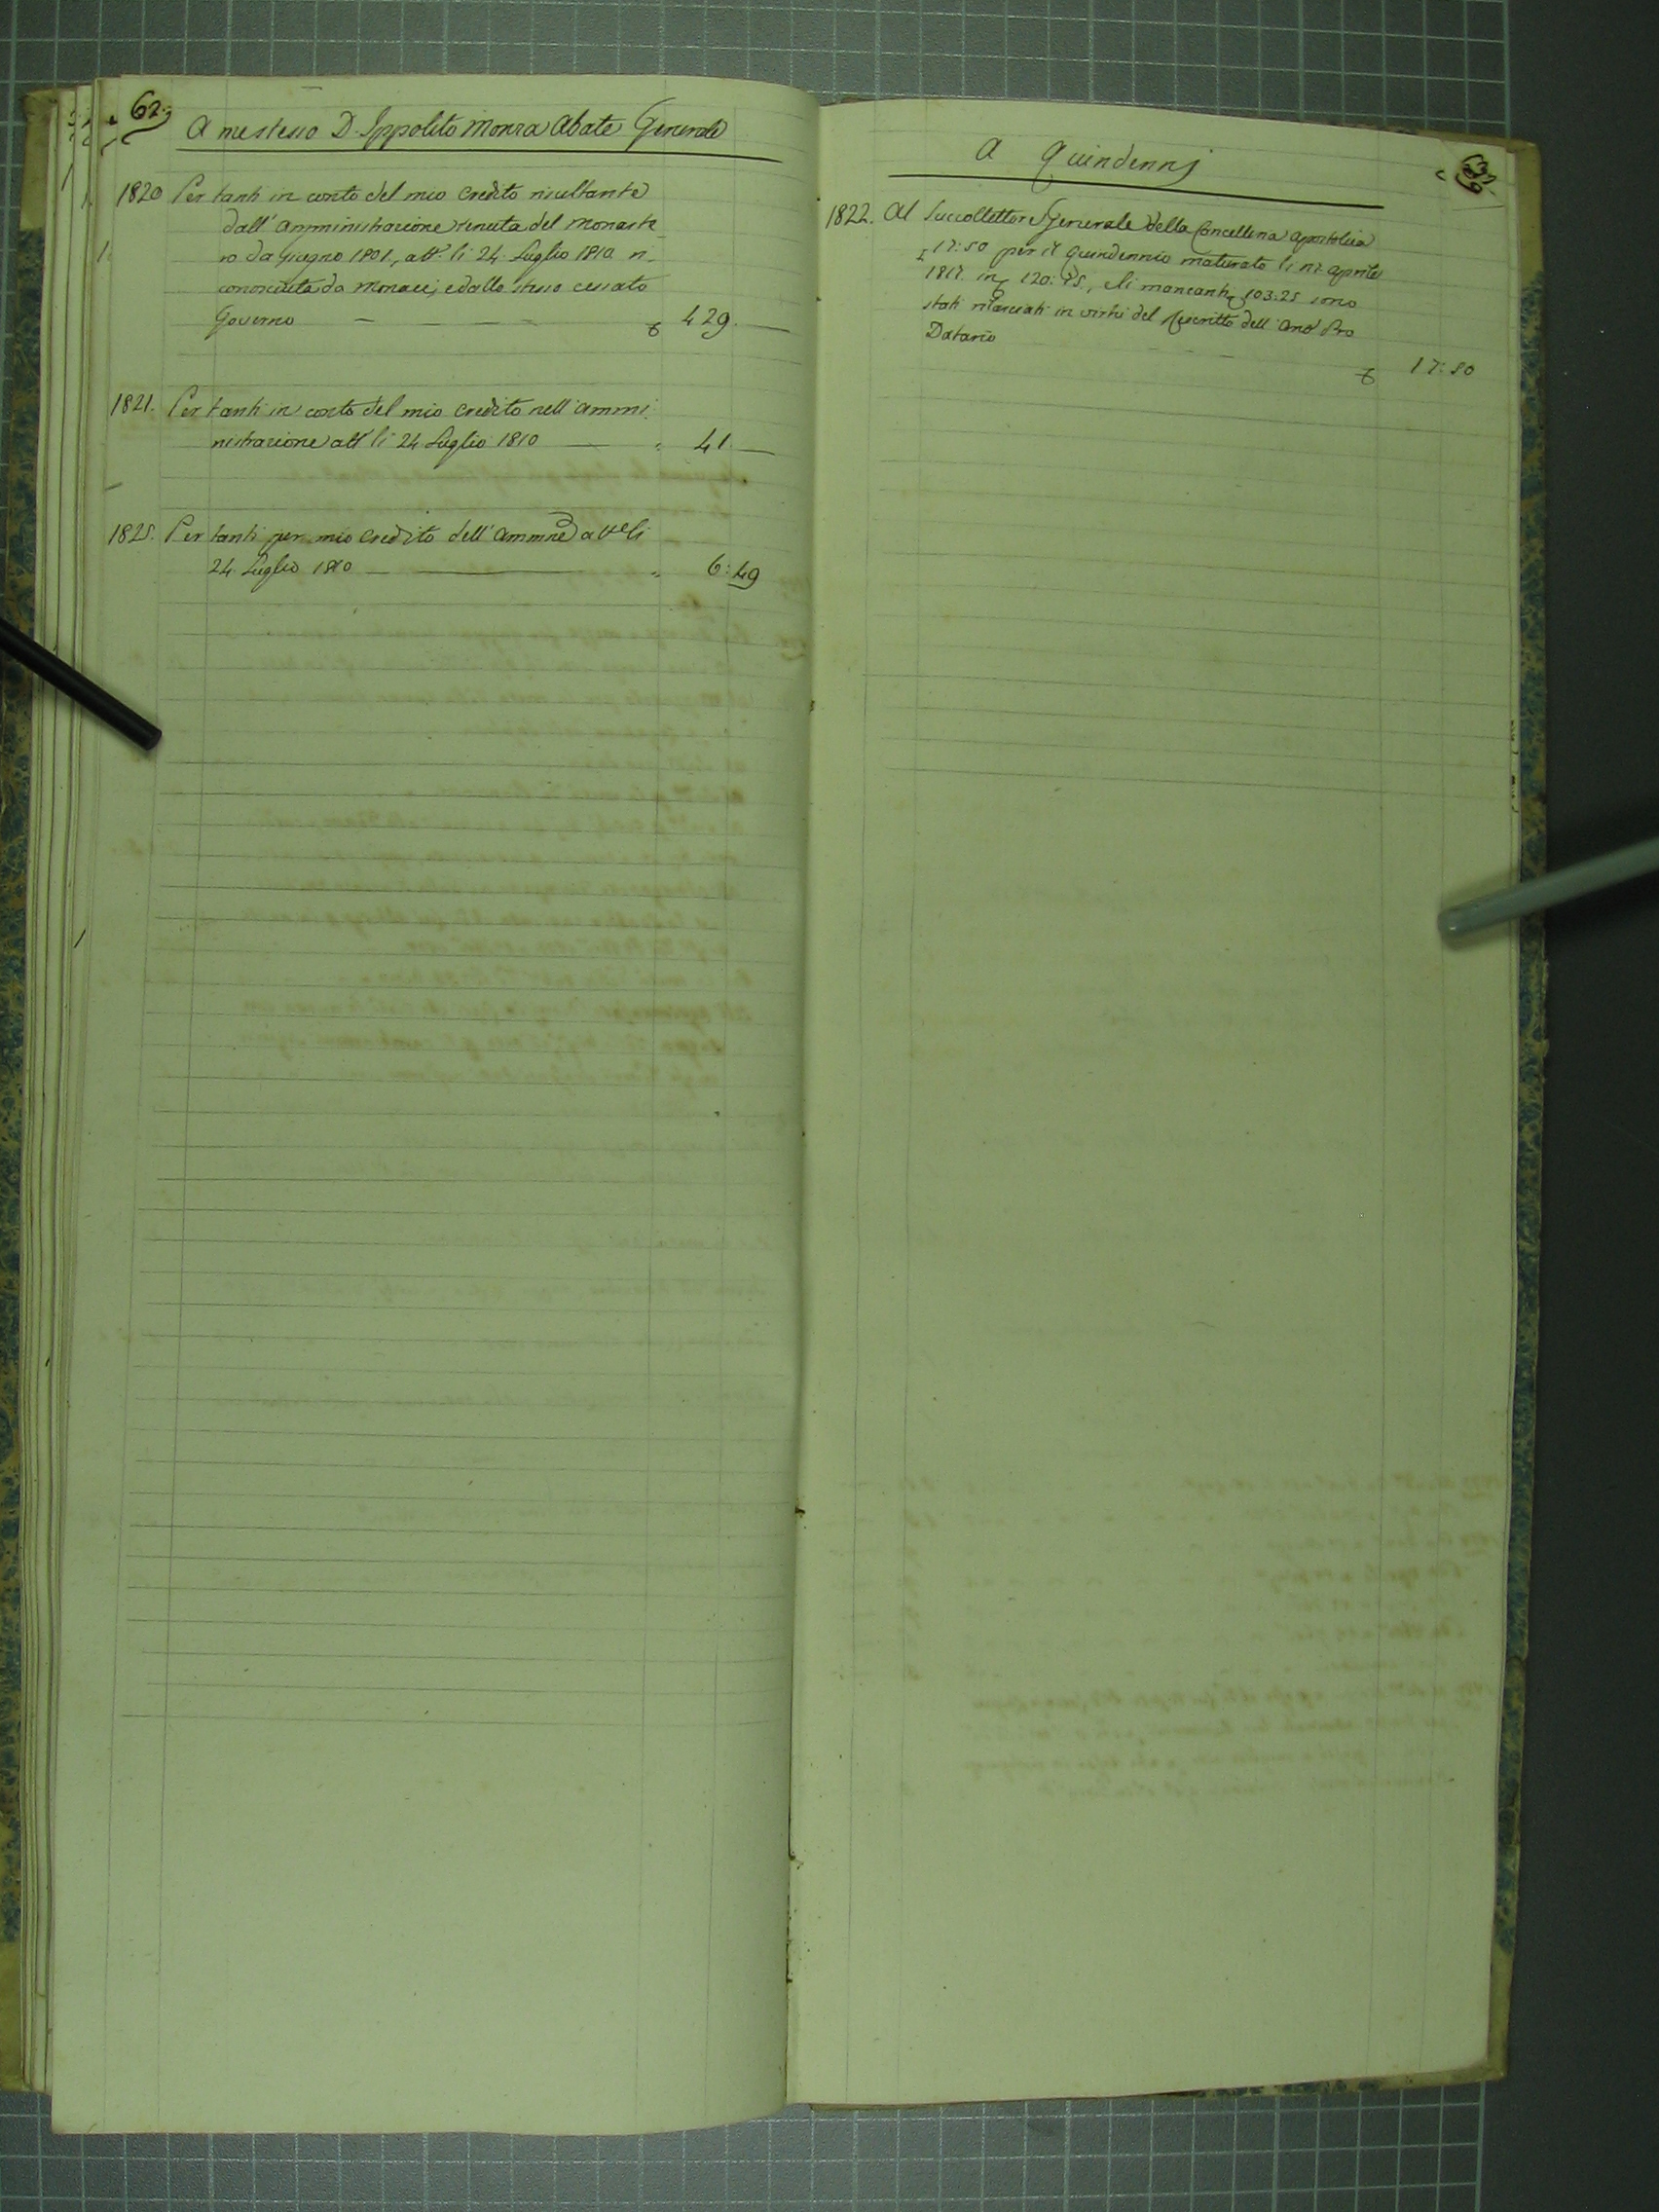 62.
A me stesso D. Ippolito Monza Abate Generale
1820 Per tanti in conto del mio Credito risultante
dall'Amministrazione tenuta del Monaste
ro da Giugno 1801., att.° li 24. Luglio 1810 ri,
conosciuta da Monaci, e dallo stesso cessato
Governo — — — 429.—
1821. Per tanti in conto del mio Credito nell'ammi,
nistrazione att° li 24 Luglio 1810 — " 41.—
1825. Per tanti per mio Credito dell'Ammne a tte li
24. Luglio 1810 — — " 6:49
63.
A Quindennj
1822. Al Succollettore Generale della Cancelleria Apostolica
17:50 per il Quindennio maturato li Aprile
1817. in 120:75., e li mancanti 103:25 sono
stati rilasciati in virtù del Rescritto dell' Pro
Datario — — — 17:50